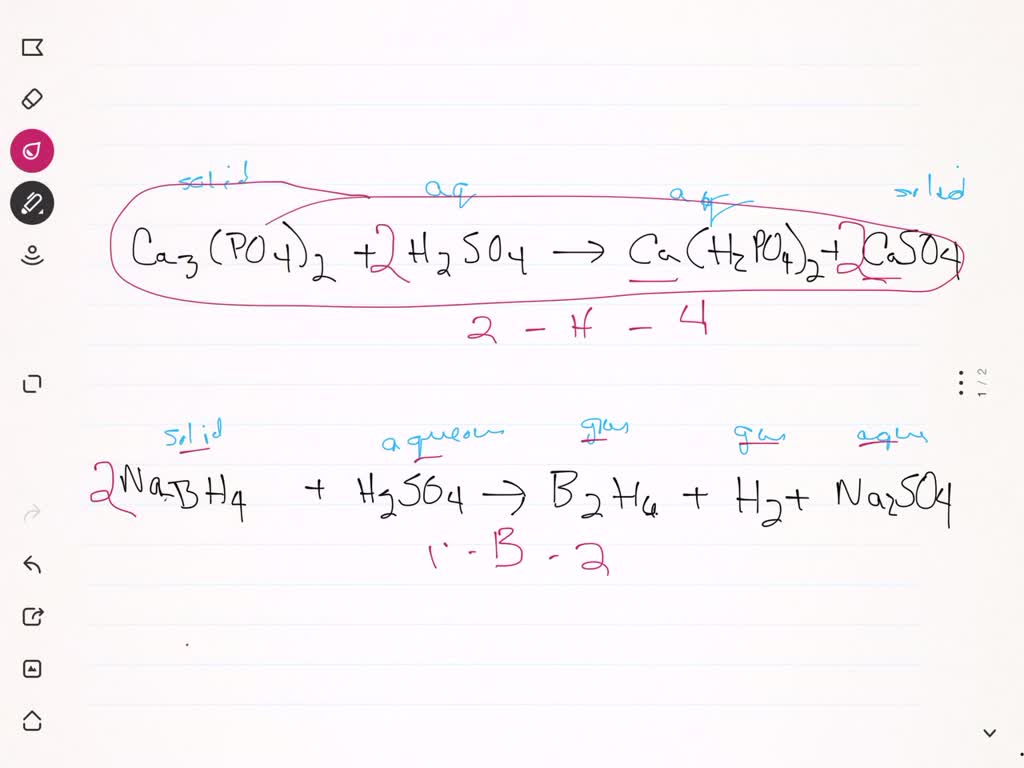 solid aq aq solid
Ca3(PO4)2 + 2H2SO4 → Ca(H2PO4)2 + 2CaSO4
2 - H - 4
solid aqueous gas gas aqus
2NaBH4 + H2SO4 → B2H6 + H2 + Na2SO4
1 - B - 2
1/2